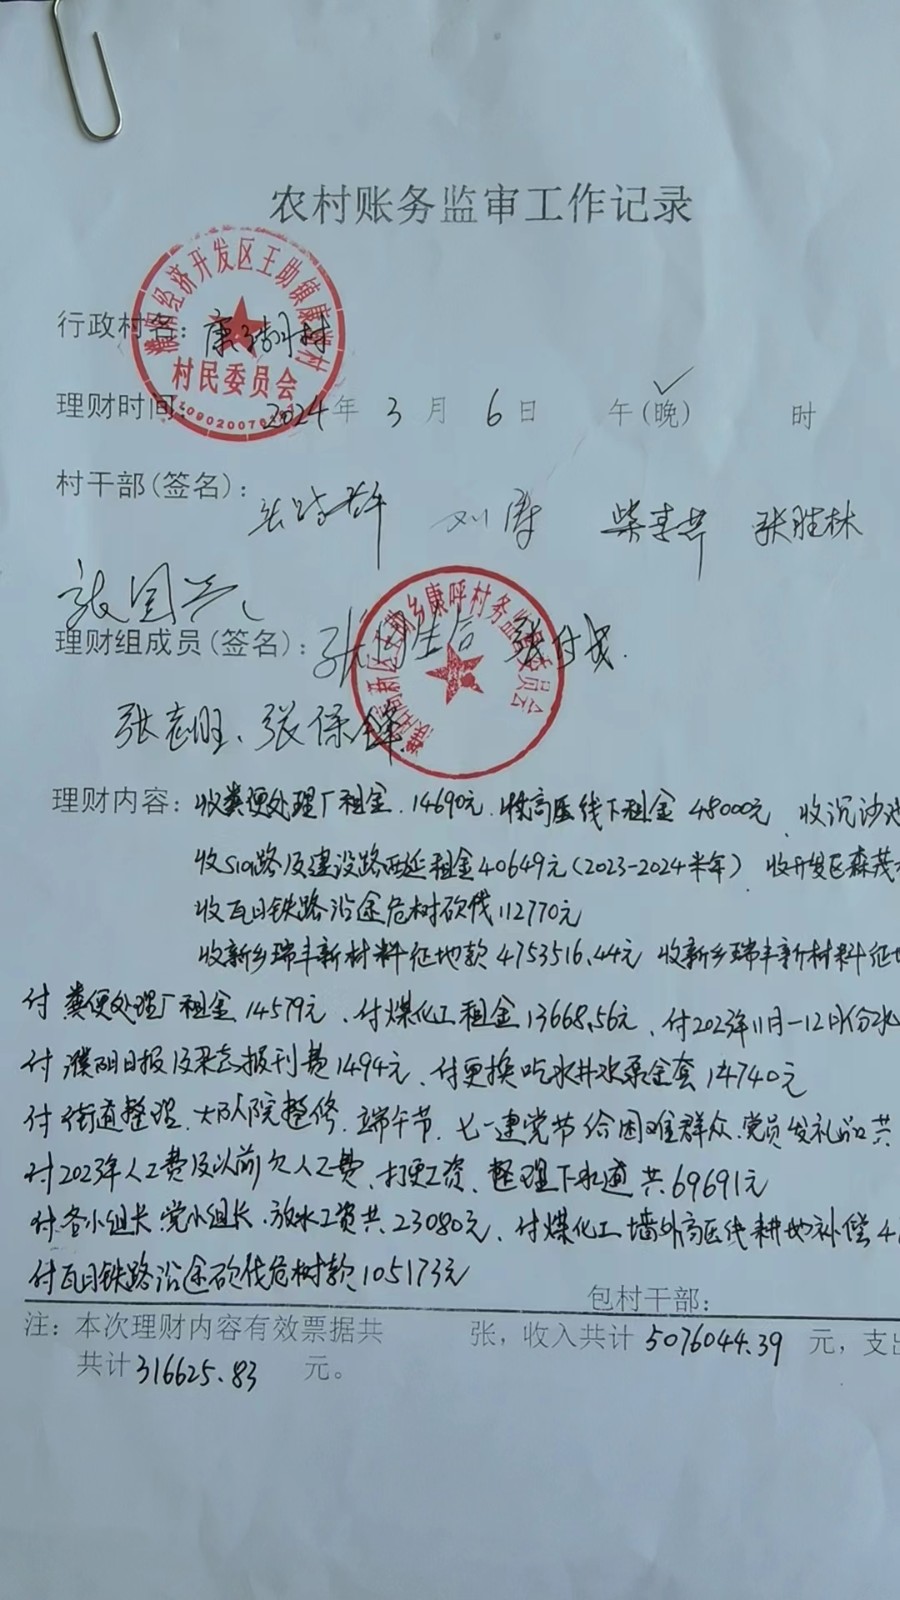 农村账务监审工作记录
经济开发区王助镇康呼村
村民委员会
行政村名：康呼村
理财时间：2024年 3 月 6 日 午(晚) 时
村干部(签名)：
刘涛 张胜林
张国兴
康呼村务监督委员会
理财组成员(签名)：
张志旺、张保锋
理财内容：收粪便处理厂租金.14690元.收高压线下租金48000元、收沉沙池
收S101路及建设路西延租金40649元(2023-2024半年)、收开发区森茂
收瓦日铁路沿途危树砍伐112770元
收新乡瑞丰新材料征地款4753516.44元 收新乡瑞丰新材料征地
付粪便处理厂租金14579元、付煤化工租金13668.56元、付2023年11月-12月份水
付濮阳日报及杂志报刊费1494元、付更换吃水井水泵全套14740元
付街道整理、大队院整修、端午节、七一建党节给困难群众、党员发礼品共
付2023年人工费及以前欠人工费、打更工资、整理下水道共69691元
付各小组长、党小组长、放水工资共23080元、付煤化工墙外高压线耕地补偿4
付瓦日铁路沿途砍伐危树款105173元
包村干部：
注：本次理财内容有效票据共 张，收入共计5076044.39元，支出
共计316625.83 元。